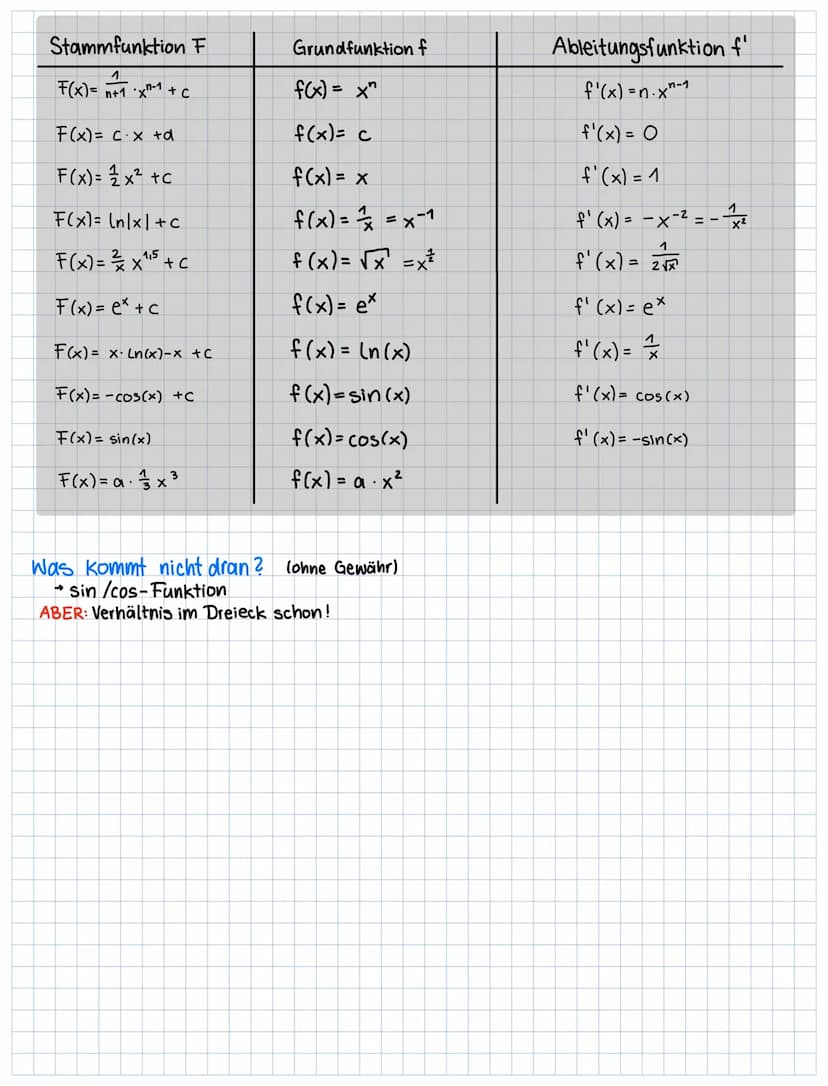 Stammfunktion F | Grundfunktion f | Ableitungsfunktion f'
F(x)= 1/(n+1) · xⁿ⁻¹ + c | f(x) = xⁿ | f'(x) = n·xⁿ⁻¹
F(x)= c·x +d | f(x)= c | f'(x) = 0
F(x)= 1/2 x² +c | f(x)= x | f'(x) = 1
F(x)= ln|x| +c | f(x) = 1/x = x⁻¹ | f'(x) = -x⁻² = - 1/x²
F(x)= 2/x x^1,5 + c | f(x)= √x = x^(1/2) | f'(x) = 1/(2√x)
F(x)= eˣ + c | f(x)= eˣ | f'(x)= eˣ
F(x)= x·ln(x)-x +c | f(x) = ln(x) | f'(x)= 1/x
F(x)= -cos(x) +c | f(x)=sin(x) | f'(x)= cos(x)
F(x)= sin(x) | f(x)=cos(x) | f'(x)= -sin(x)
F(x)= a · 1/3 x³ | f(x) = a · x²
Was kommt nicht dran? (ohne Gewähr)
→ sin/cos-Funktion
ABER: Verhältnis im Dreieck schon!